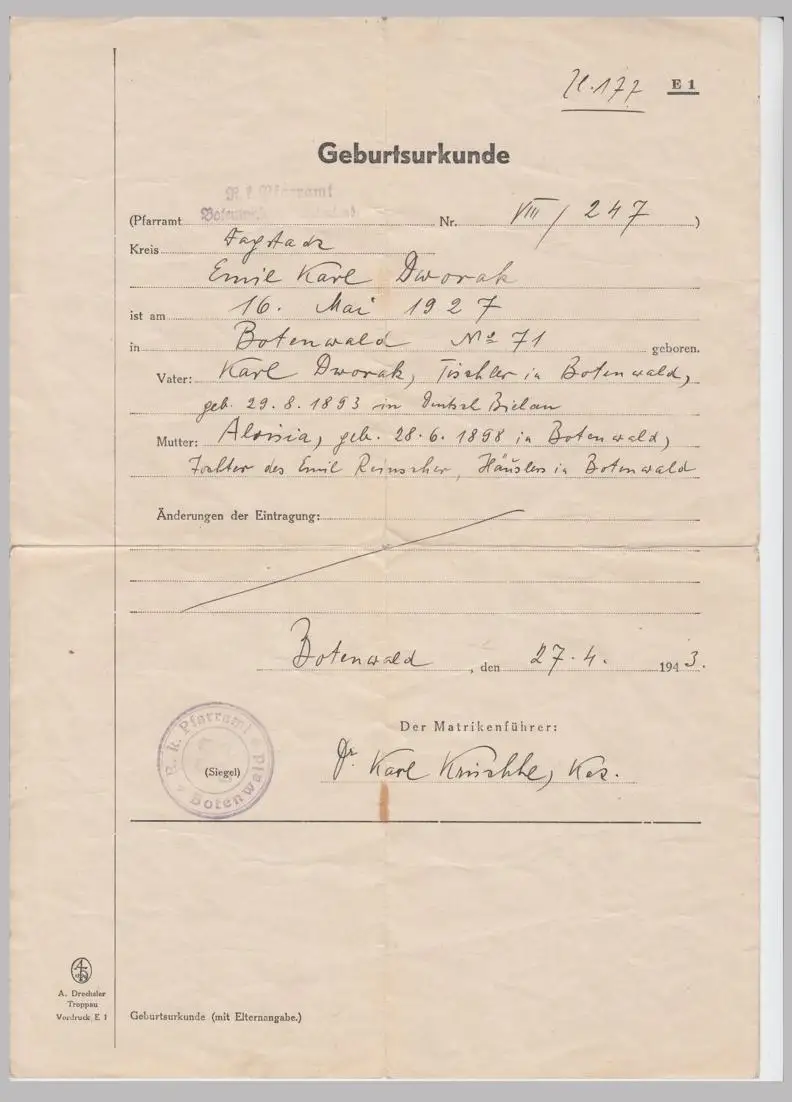 Zl. 177 E 1
Geburtsurkunde
R. k. Pfarramt
(Pfarramt Nr. VIII / 247 )
Kreis
Emil Karl Dworak
ist am 16. Mai 1927
in Botenwald No 71 geboren.
Vater: Karl Dworak, Tischler in Botenwald,
geb. 29.8.1893 in Deutsch Bielau
Mutter: Aloisia, geb. 28.6.1898 in Botenwald,
Tochter des Emil Reinscher, Häuslers in Botenwald
Änderungen der Eintragung:
Botenwald, den 27.4. 1943.
Der Matrikenführer:
Dr. Karl
R. k. Pfarramt Botenwald
(Siegel)
A. Drechsler
Troppau
Vordruck E 1
Geburtsurkunde (mit Elternangabe.)